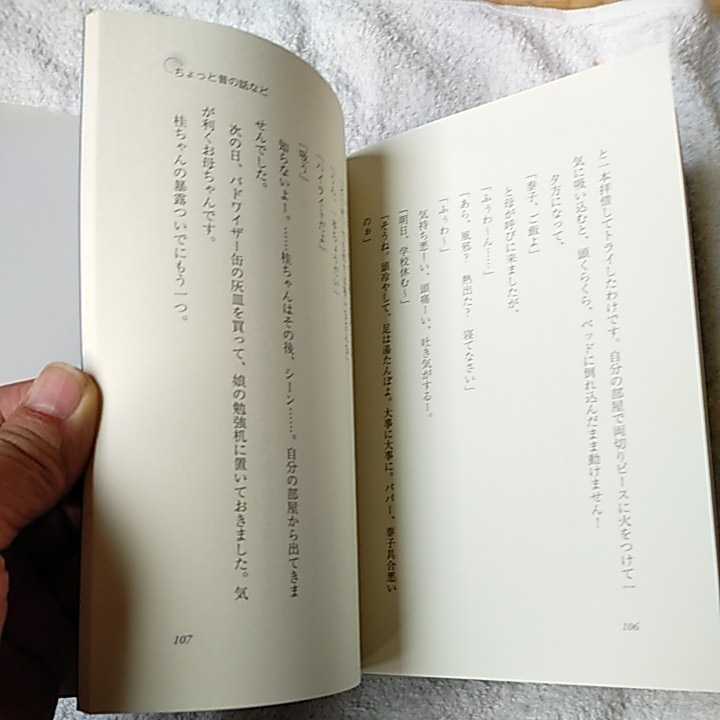 と一本拝借してトライしたわけです。自分の部屋で両切りピースに火をつけて一
気に吸い込むと、頭くらくら、ベッドに倒れ込んだまま動けません！
夕方になって、
「泰子、ご飯よ」
と母が呼びに来ましたが、
「ふぅわーん……」
「あら、風邪？ 熱出た？ 寝てなさい」
「ふぅわ〜」
気持ち悪ーい、頭痛ーい、吐き気がするー。
「明日、学校休む〜」
「そうね。頭冷やして、足は湯たんぽよ。大事に大事に。パパー、泰子具合悪い
のぉ」
106
ちょっと昔の話など
知らないよー。……桂ちゃんはその後、シーン……。自分の部屋から出てきま
せんでした。
次の日、バドワイザー缶の灰皿を買って、娘の勉強机に置いておきました。気
が利くお母ちゃんです。
桂ちゃんの暴露ついでにもう一つ。
107